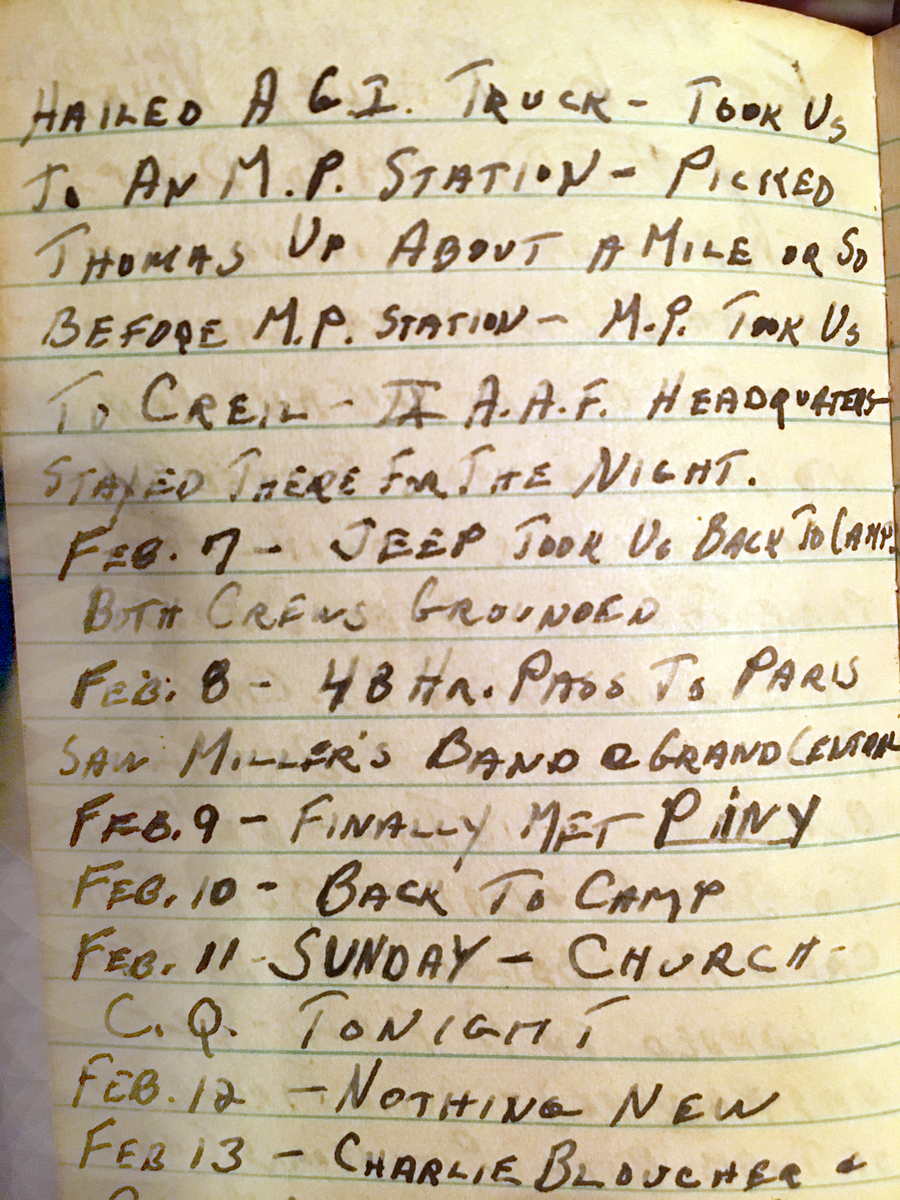 HAILED A G.I. TRUCK - TOOK US
TO AN M.P. STATION - PICKED
THOMAS UP ABOUT A MILE OR SO
BEFORE M.P. STATION - M.P. TOOK US
TO CREIL - IX A.A.F. HEADQUATERS
STAYED THERE FOR THE NIGHT.
FEB. 7 - JEEP TOOK US BACK TO CAMP.
BOTH CREWS GROUNDED
FEB. 8 - 48 HR. PASS TO PARIS
SAW MILLER'S BAND @ GRAND CENTRAL
FEB. 9 - FINALLY MET PiNY
FEB. 10 - BACK TO CAMP
FEB. 11 - SUNDAY - CHURCH -
C.Q. TONIGHT
FEB. 12 - NOTHING NEW
FEB 13 - CHARLIE BLOUCHER